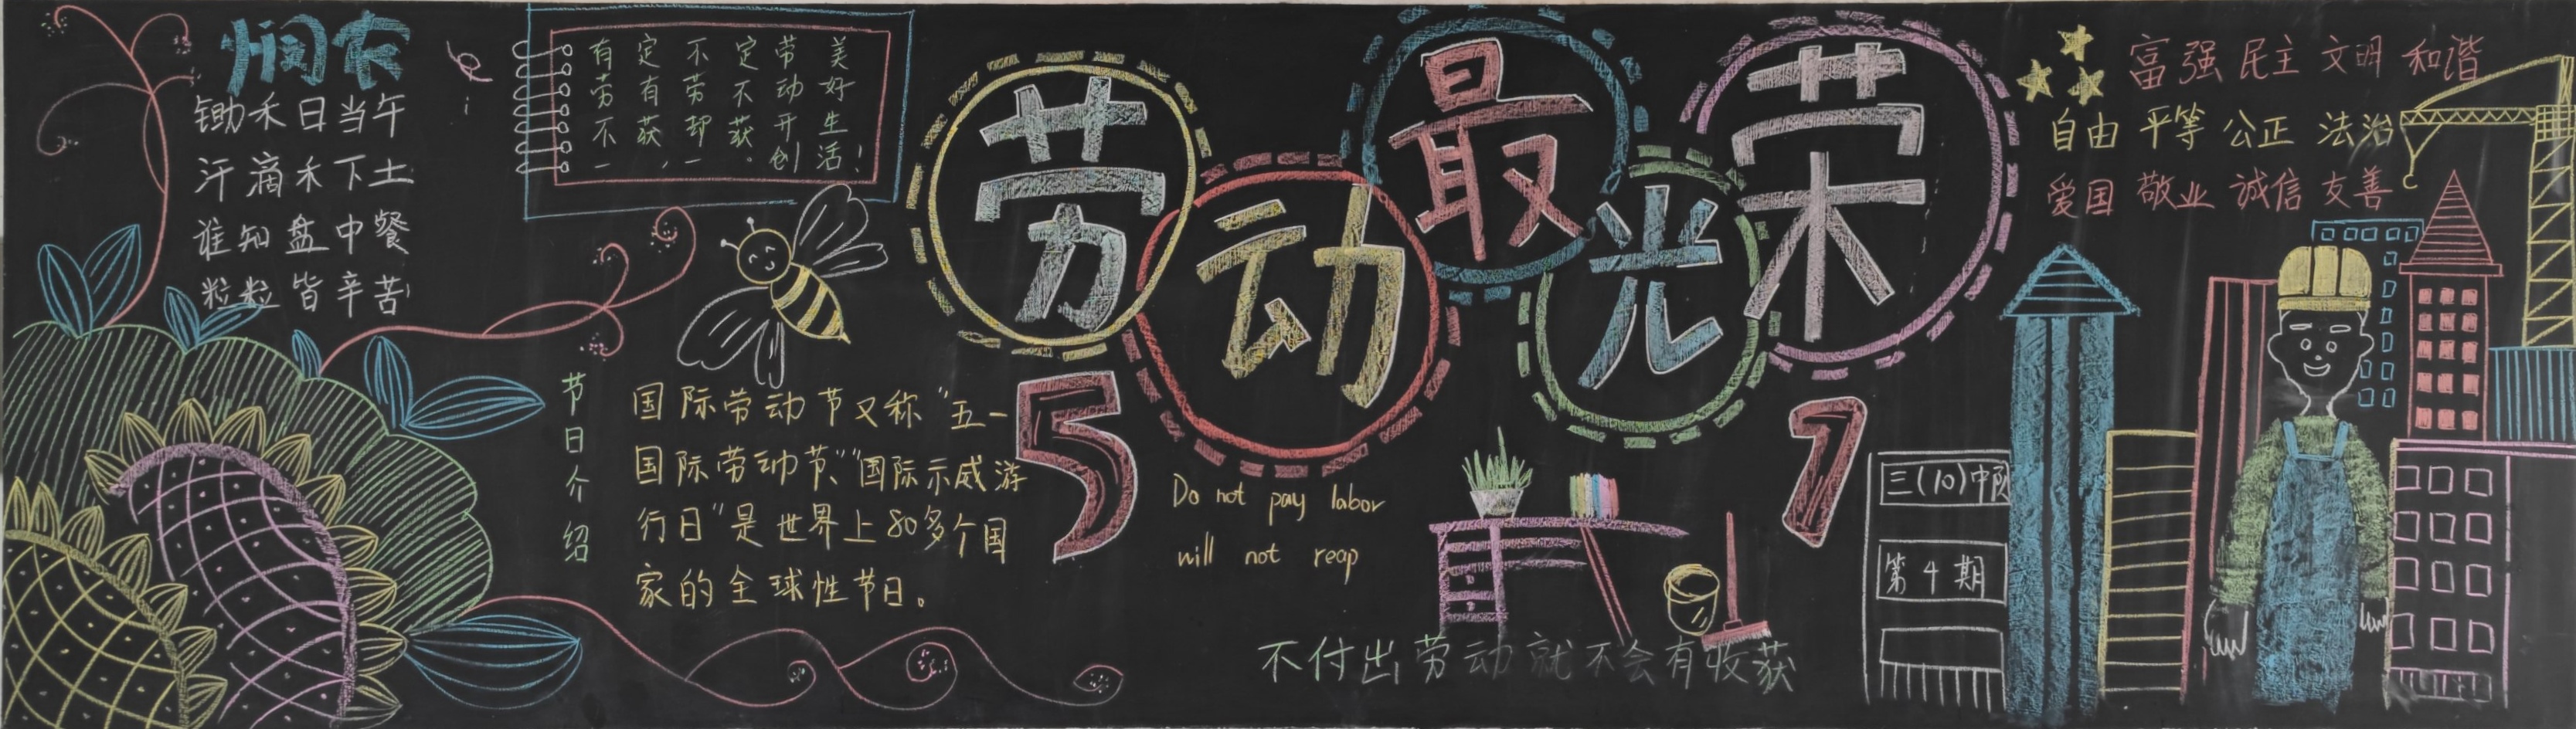 悯农
锄禾日当午
汗滴禾下土
谁知盘中餐
粒粒皆辛苦
有劳不一
定有获，
不劳却一
定不获。
劳动开创
美好生活！
劳动最光荣
5 1
节日介绍
国际劳动节又称“五一
国际劳动节”、“国际示威游
行日”是世界上80多个国
家的全球性节日。
Do not pay labor
will not reap
不付出劳动就不会有收获
富强 民主 文明 和谐
自由 平等 公正 法治
爱国 敬业 诚信 友善
三(10)中队
第4期